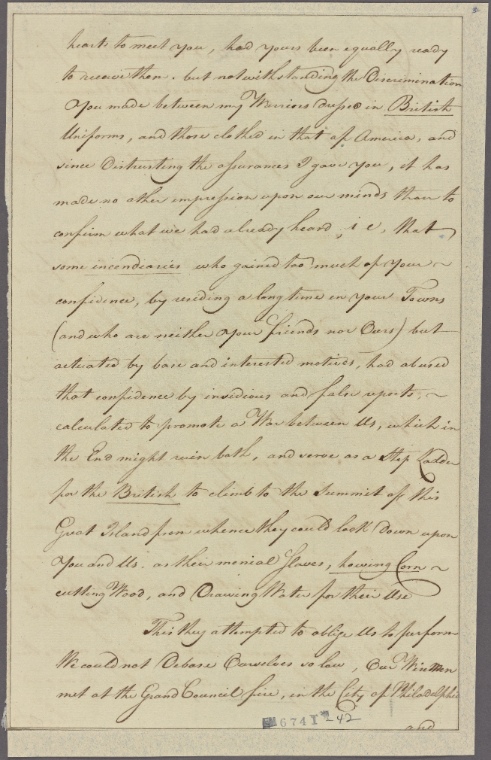 hearts to meet you, had yours been equally ready
to receive them. but notwithstanding the Discrimination
You made between my Warriors dressed in British
Uniforms, and those clothed in that of America, and
since Distrusting the assurances I gave you, it has
made no other impression upon our minds than to
confirm what we had already heard, i e, that
some incendiaries who gained too much of your
confidence, by residing a long time in your Towns
(and who are neither your friends nor Ours) but
actuated by base and interested motives, had abused
that confidence by insidious and false reports,
calculated to promote a War between Us, which in
the End might ruin both, and serve as a Step Ladder
for the British to climb to the Summit of this
Great Island from whence they could look Down upon
You and Us. as their menial Slaves, howing Corn
cutting Wood, and Drawing Water for their Use
This they attempted to oblige Us to perform
We could not Debase Ourselves so low, Our Wisemen
met at the Grand Council fire, in the City of Philadelphia
and
6741 - 242